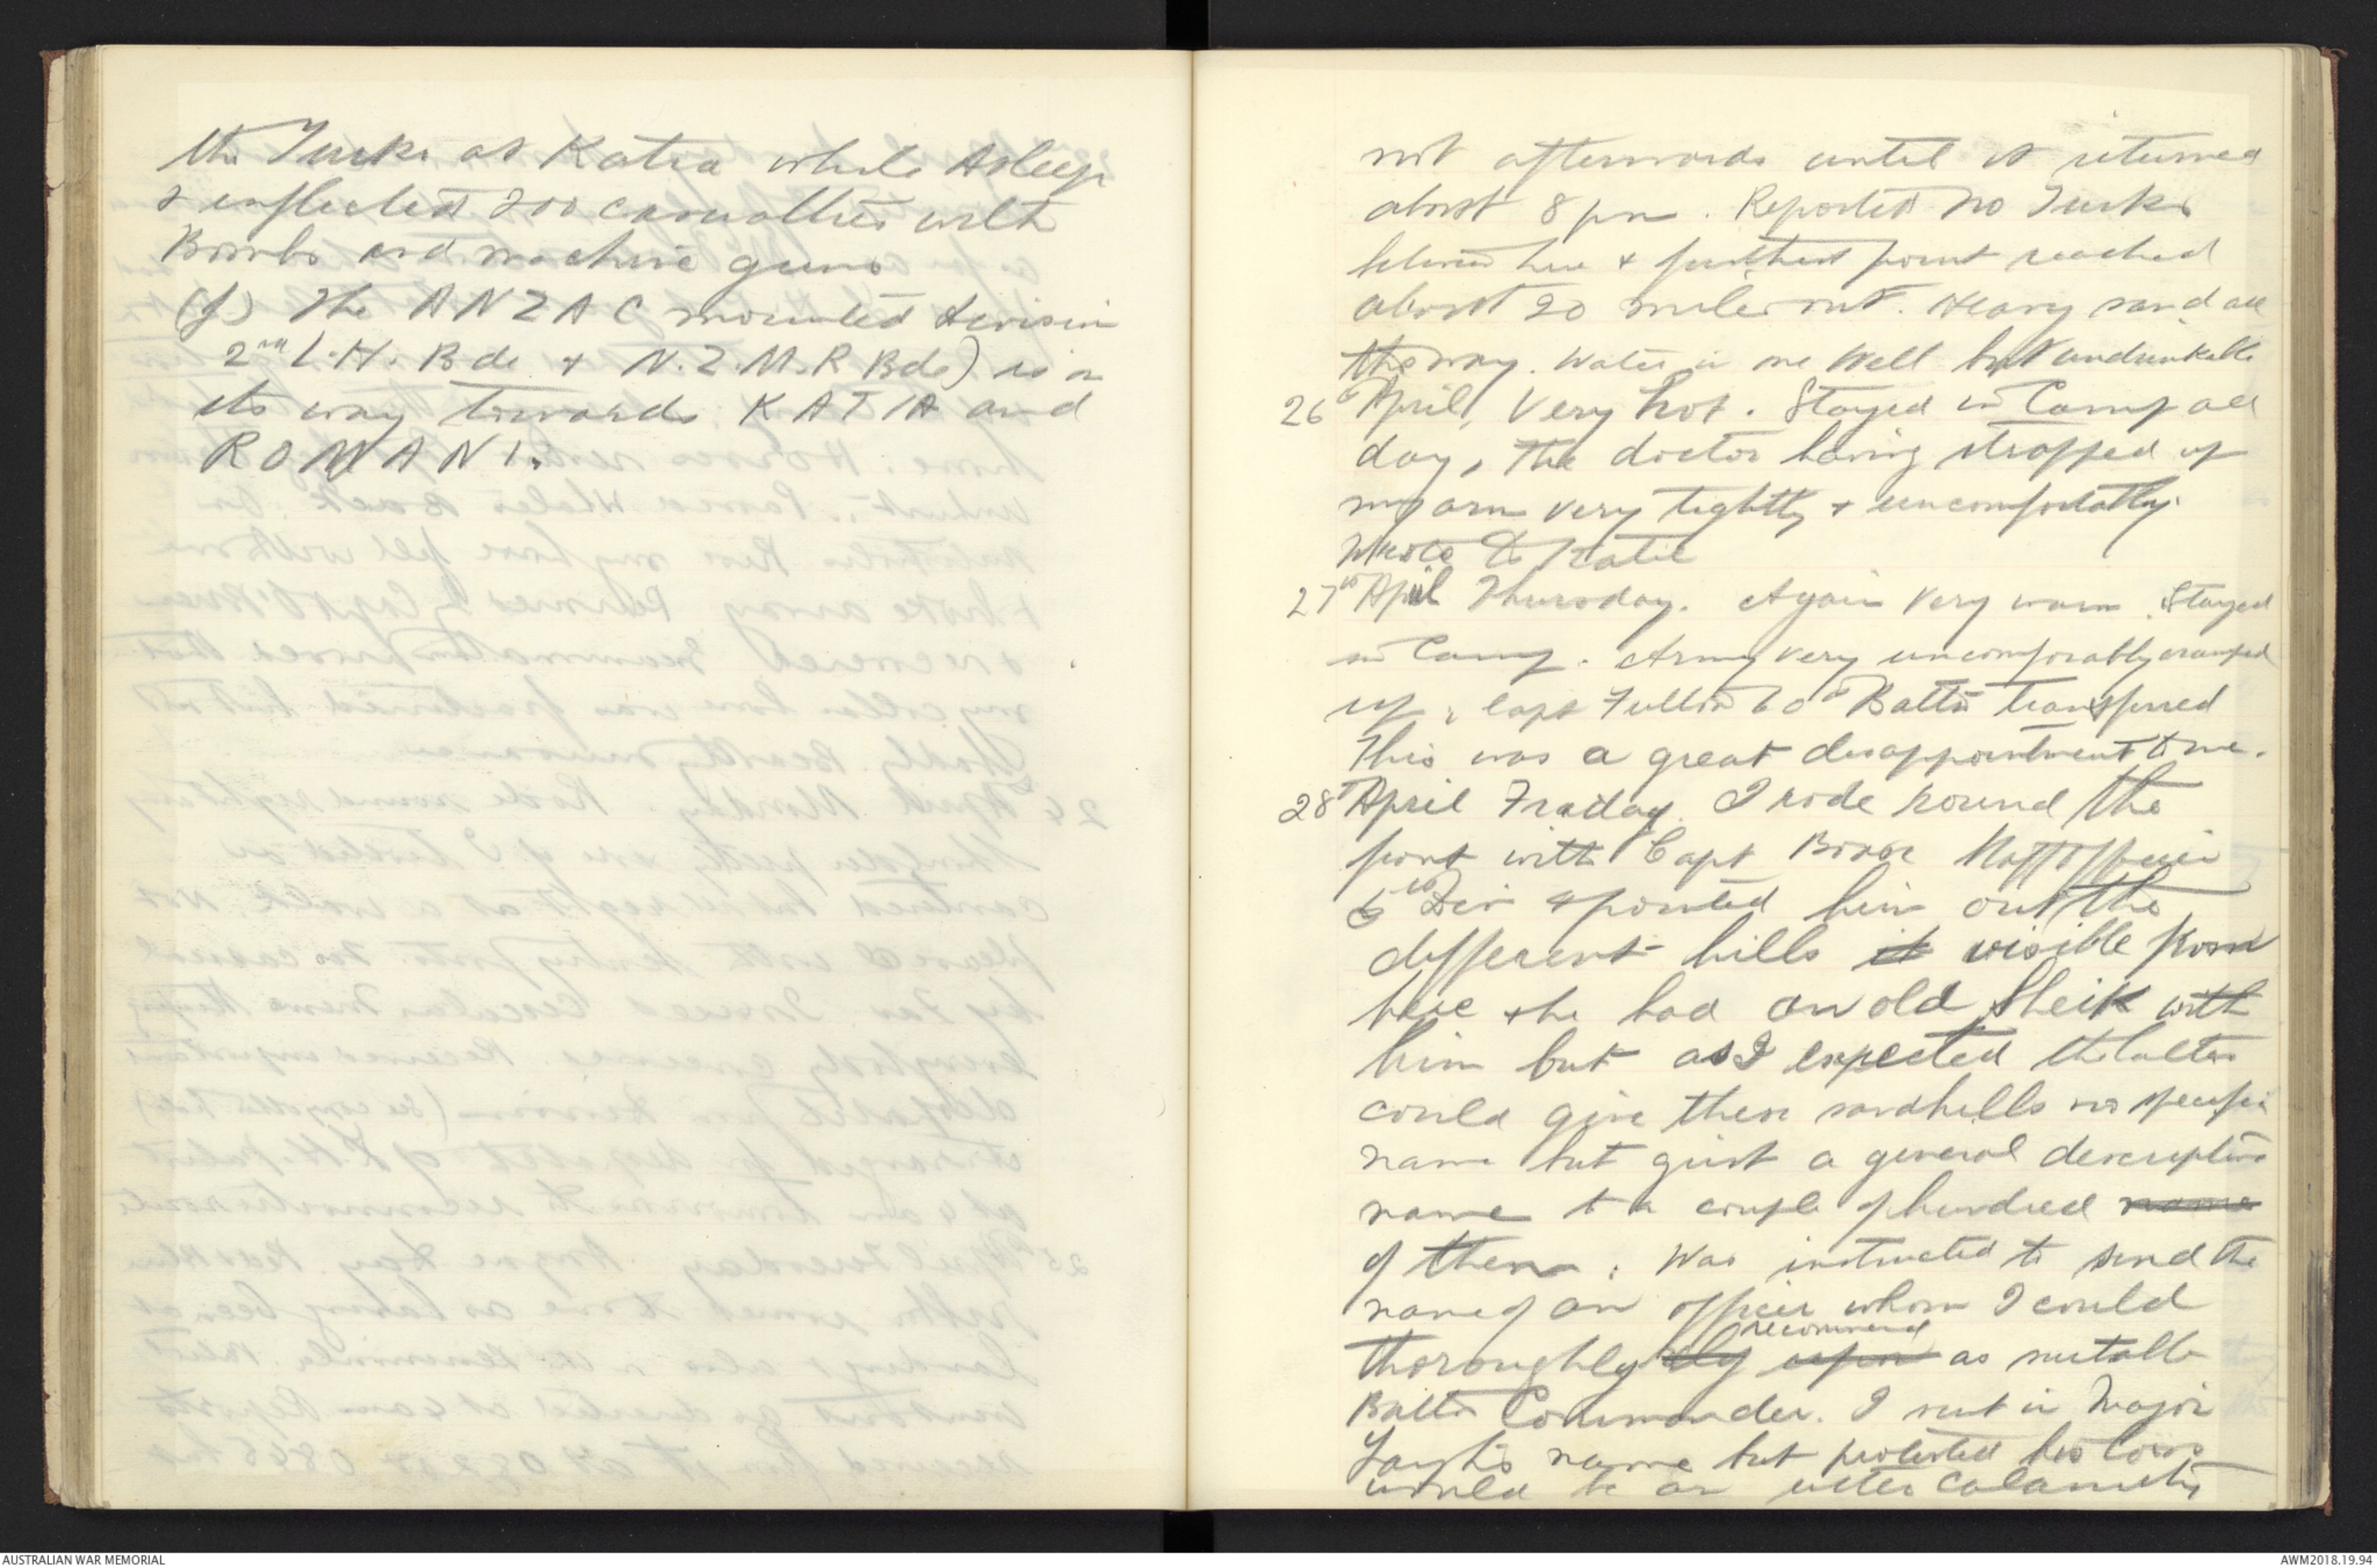 the Turks at Katia while Asleep
& inflicted 200 casualties with
Bombs and machine guns
(f) The ANZAC mounted division
2nd L.H. Bde & N.Z.M.R Bde) is on
its way towards KATIA and
ROMANI.
not afterwards until it returned
about 8 pm. Reported no Turks
between here & furthest point reached
about 20 miles out. Heavy sand all
the way. Water in one Well but undrinkable
26th April, Very hot. Stayed in Camp all
day, The doctor having strapped up
my arm very tightly & uncomfortably.
Wrote to Katie
27th April Thursday. Again very warm. Stayed
in Camp. Army very uncomforably cramped
up. Capt 60th Battn transferred
This was a great disappointment to me.
28th April Fraday. I rode round the
front with Capt Staff Officer
5th Div & pointed him out the
different hills it visible from
here & he had an old Sheik with
him but as I expected the latter
could give these sandhills no specific
name but just a general descriptive
name to a couple of hundred name
of them. Was instructed to send the
name of an officer whom I could
recommend
thoroughly rely upon as suitable
Battn Commander. I sent in Major
name but protested his loss
would be an utter calamity
AUSTRALIAN WAR MEMORIAL
AWM2018.19.94